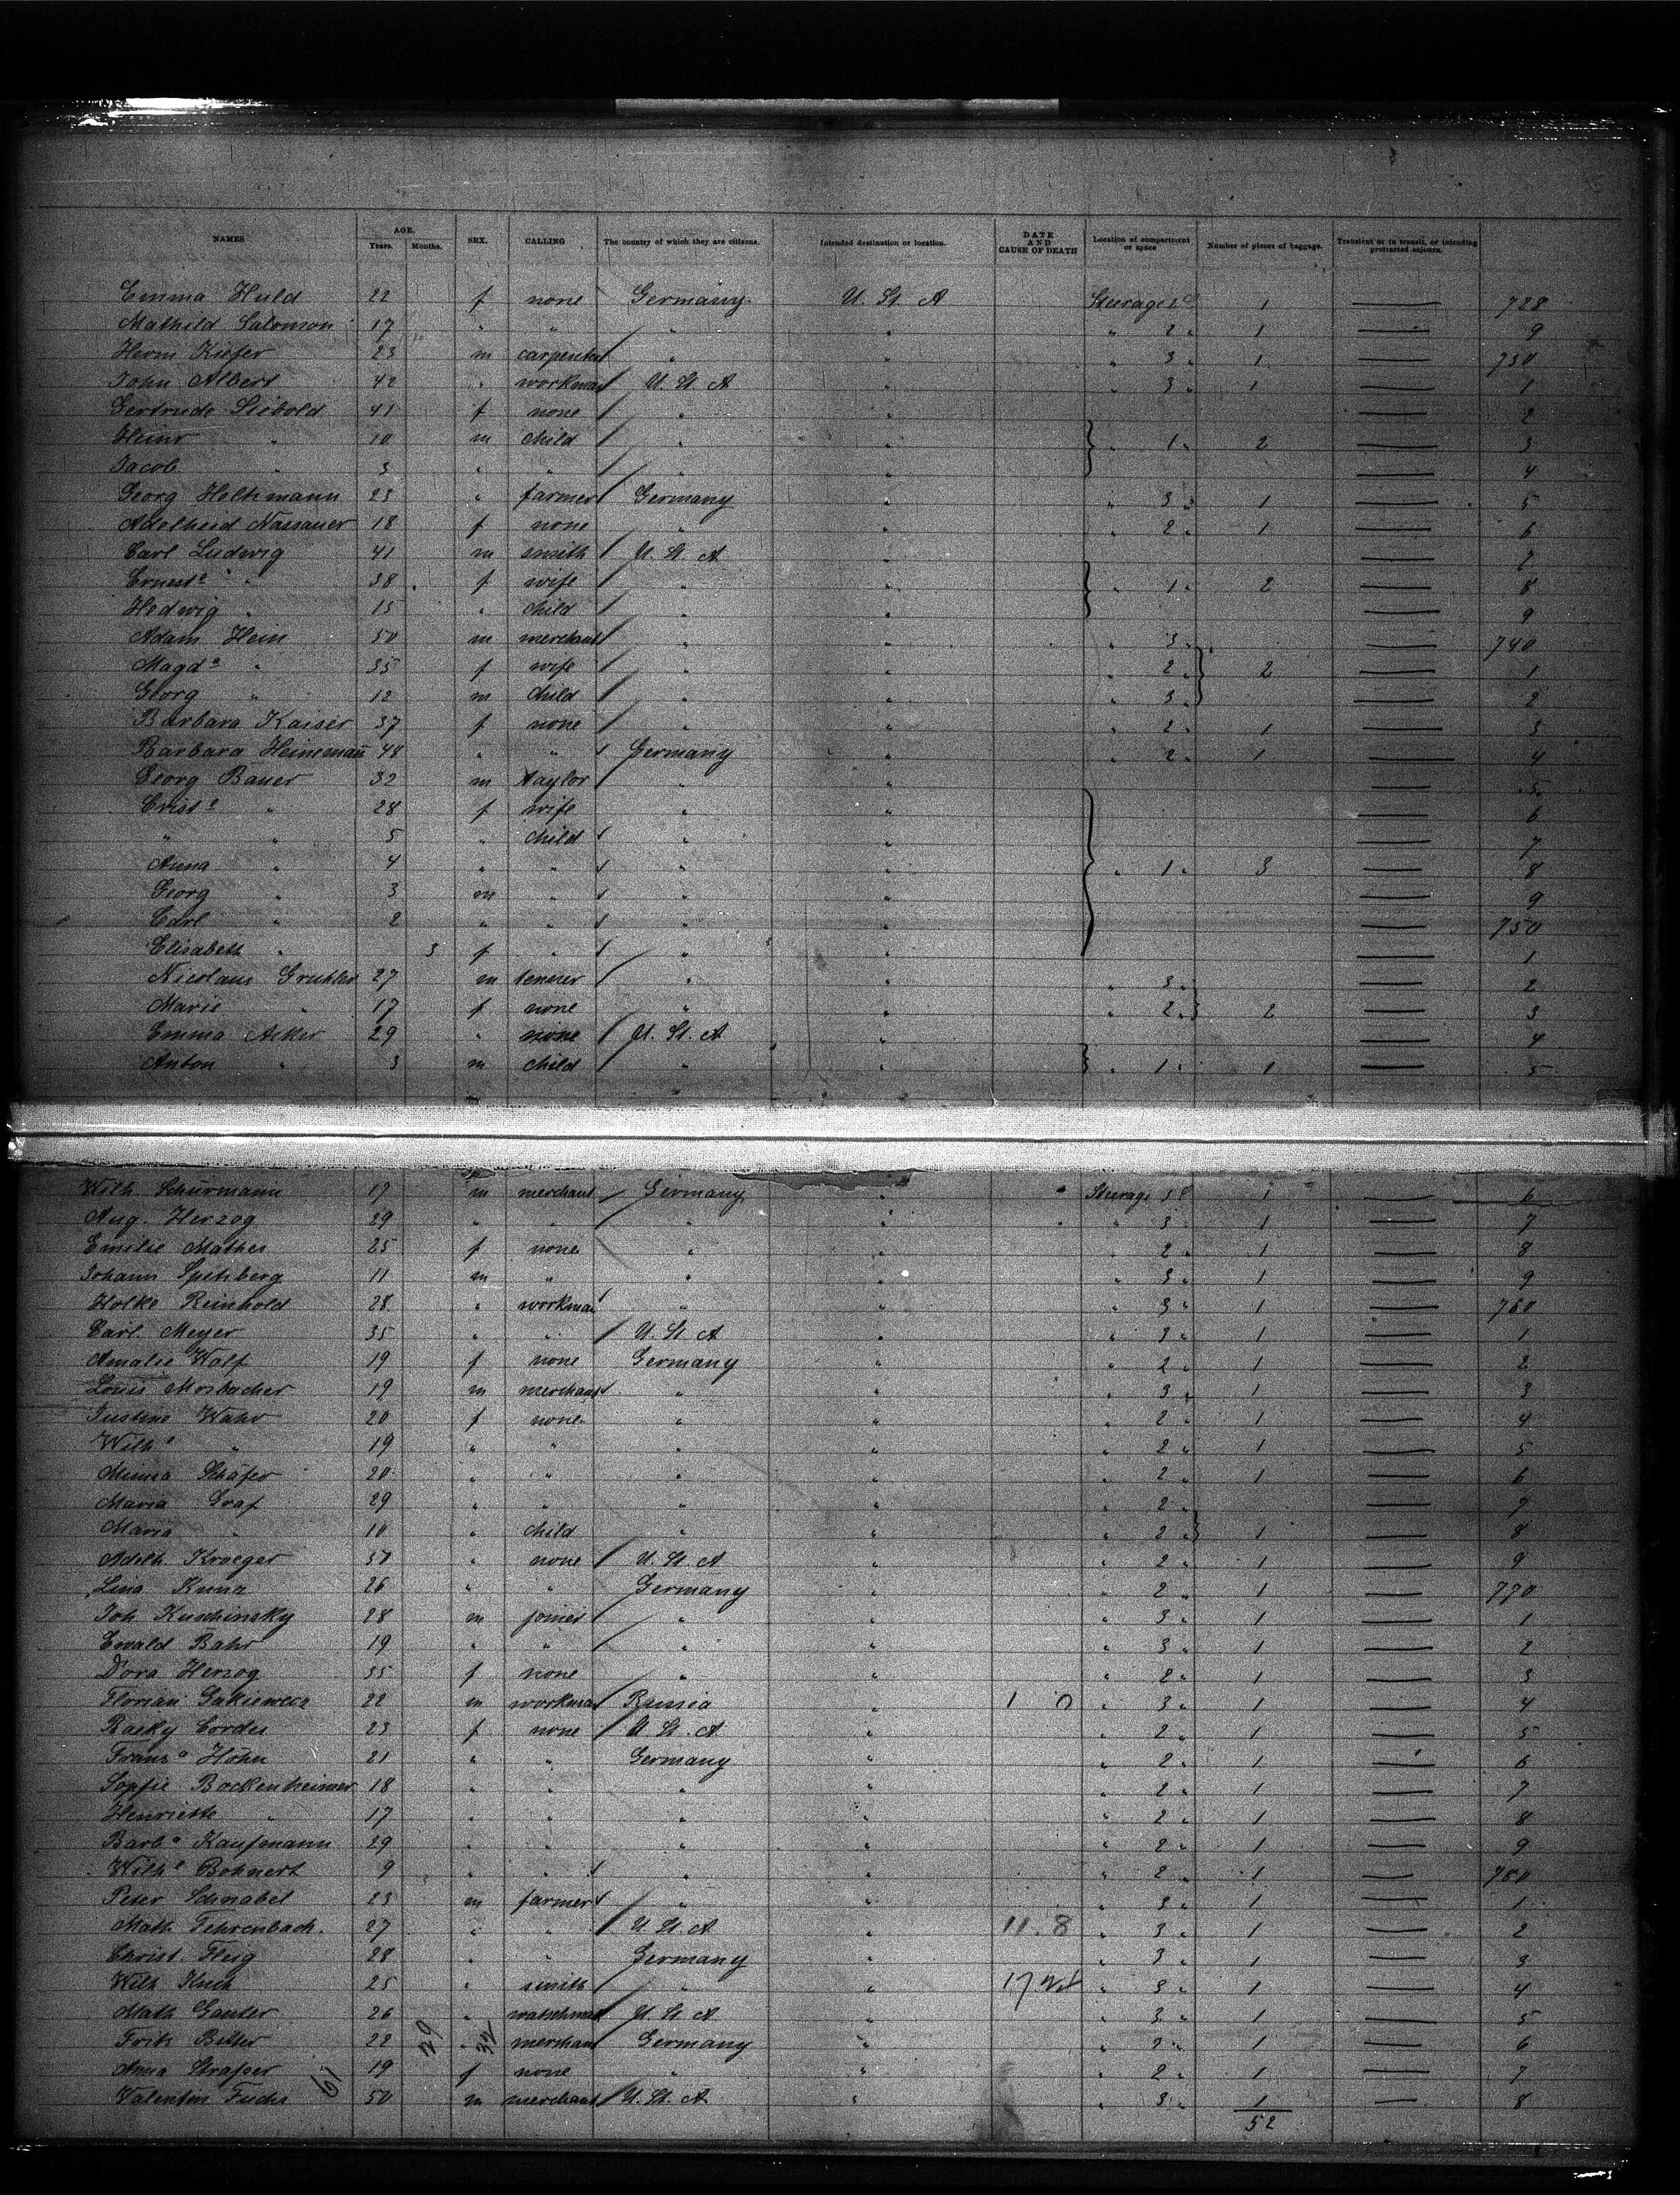 NAMES AGE. Years. Months. SEX. CALLING The country of which they are citizens. Intended destination or location. DATE AND CAUSE OF DEATH Location of compartment or space Number of pieces of baggage. Transient or in transit, or intending protracted sojourn.
Emma Huld 22 f none Germany U. St. A Steerage 2 1 — 728
Mathild Salomon 17 " " " " " 2 " 1 — 9
Herm Kiefer 23 m carpenter " " " 3 " 1 — 730
John Albert 42 " workman U. St. A " " 3 " 1 — 1
Gertrude Siebold 41 f none " " — 2
Heinr " 10 m child " " " 1 " 2 — 3
Jacob " 3 " " " " — 4
Georg Holtzmann 23 " farmer Germany " " 3 " 1 — 5
Adelheid Nassauer 18 f none " " " 2 " 1 — 6
Carl Ludwig 41 m smith U. St. A " — 7
Ernest<sup>e</sup> " 38 f wife " " " 1 " 2 — 8
Hedwig " 15 " child " " — 9
Adam Hein 50 m merchant " " " 3 " — 740
Magd<sup>a</sup> " 35 f wife " " " 2 " 2 — 1
Georg " 12 m child " " " 3 " — 2
Barbara Kaiser 37 f none " " " 2 " 1 — 3
Barbara Heinemañ 48 " " Germany " " 2 " 1 — 4
Georg Bauer 32 m taylor " " — 5
Crist<sup>e</sup> " 28 f wife " " — 6
" " 5 " child " " — 7
Anna " 4 " " " " " 1 " 3 — 8
Georg " 3 m " " " — 9
Carl " 2 " " " " — 750
Elisabeth " 3 f " " " — 1
Nicolaus Gruhler 27 m " " " 3 " — 2
Marie " 17 f none " " " 2 " 2 — 3
Emma Acker 29 " none U. St. A " — 4
Anton " 3 m child " " " 1 " 1 — 5
Wilh Schürmann 17 m merchant Germany " Steerage 3 1 — 6
Aug. Herzog 29 " " " " " 3 " 1 — 7
Emilie Mather 25 f none " " " 2 " 1 — 8
Johann Spitzberg 11 m " " " " 3 " 1 — 9
Holke Reinhold 28 " workman " " " 3 " 1 — 760
Carl Meyer 35 " " U. St. A " " 3 " 1 — 1
Amalie Wolf 19 f none Germany " " 2 " 1 — 2
Louis Mosbacher 19 m merchant " " " 3 " 1 — 3
Justine Wahr 20 f none " " " 2 " 1 — 4
Wilh<sup>e</sup> " 19 " " " " " 2 " 1 — 5
Minna Schäfer 20 " " " " " 2 " 1 — 6
Maria Graf 29 " " " " " 2 " — 7
Maria " 10 " child " " " 2 " 1 — 8
Adelh Kroeger " none U. St. A " " 2 " 1 — 9
Lina Kunz 26 " " Germany " " 2 " 1 — 770
Joh Kuschinsky 28 m joiner " " " 3 " 1 — 1
Ewald Bahr 19 " " " " " 3 " 1 — 2
Dora Herzog 35 f none " " " 2 " 1 — 3
Florian 22 m workman Russia " 1 0 " 3 " 1 — 4
Cordes 23 f none U. St. A " " 2 " 1 — 5
Franz<sup>a</sup> Höhn 21 " " Germany " " 2 " 1 — 6
Sopfie Bockenheimer 18 " " " " " 2 " 1 — 7
Henriette " 17 " " " " " 2 " 1 — 8
Barb<sup>a</sup> Kaufmann 29 " " " " " 2 " 1 — 9
Wilh<sup>e</sup> Bohnert 9 " " " " " 2 " 1 — 780
Peter Schnabel 23 m farmer " " " 3 " 1 — 1
Math Fehrenbach. 27 " " U. St. A " 11.8 " 3 " 1 — 2
Christ Fleig 28 " " Germany " " 3 " 1 — 3
Wilh 25 " smith " " 17 " 3 " 1 — 4
Math Ganter 26 " watchman U. St. A " " 3 " 1 — 5
Fritz 22 29 " 32 merchant Germany " " 1 — 6
Anna Strasser 19 f none " " " 2 " 1 — 7
Valentin Fuchs 61 50 m merchant U. St. A " " 3 " 1 — 8
52